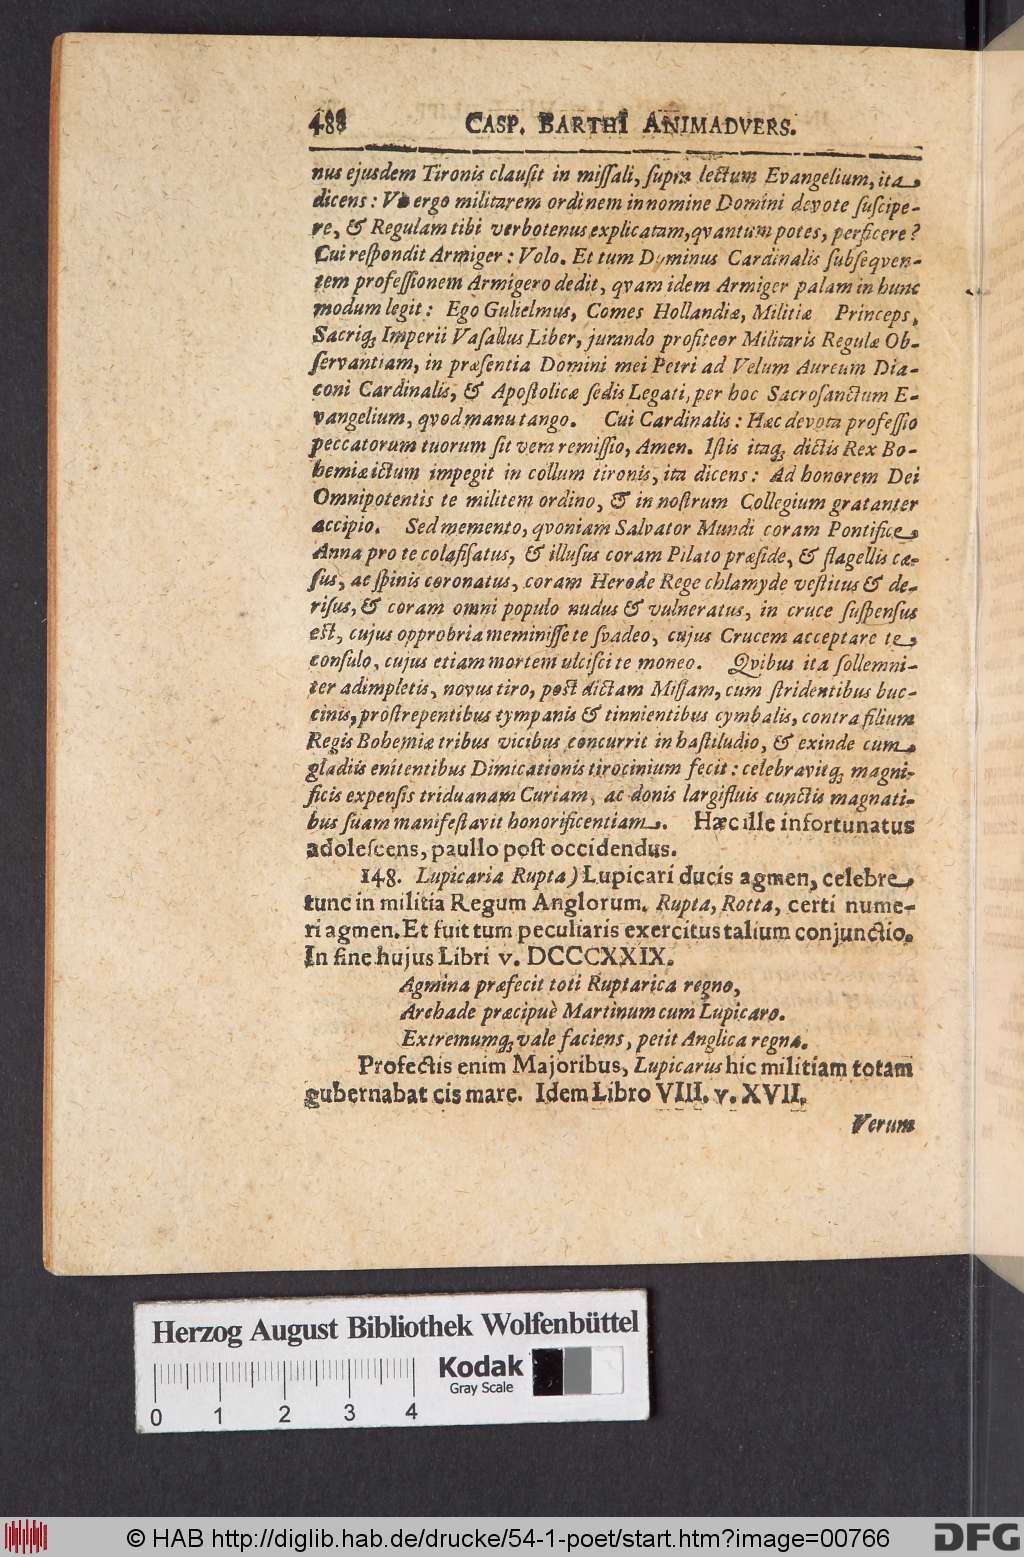 488 CASP. BARTHI ANIMADVERS.
nus ejusdem Tironis clausit in missali, supra lectum Evangelium, ita
dicens: Vis ergo militarem ordinem in nomine Domini devote suscipe-
re, & Regulam tibi verbotenus explicatam, qvantum potes, perficere?
Cui respondit Armiger: Volo. Et tum Dominus Cardinalis subseqven-
tem professionem Armigero dedit, qvam idem Armiger palam in hunc
modum legit: Ego Gulielmus, Comes Hollandiæ, Militiæ Princeps,
Sacriq; Imperii Vasallus Liber, jurando profiteor Militaris Regulæ Ob-
servantiam, in præsentia Domini mei Petri ad Velum Aureum Dia-
coni Cardinalis, & Apostolicæ sedis Legati, per hoc Sacrosanctum E-
vangelium, qvod manu tango. Cui Cardinalis: Hæc devota professio
peccatorum tuorum sit vera remissio, Amen. Istis itaq; dictis Rex Bo-
hemiæ ictum impegit in collum tironis, ita dicens: Ad honorem Dei
Omnipotentis te militem ordino, & in nostrum Collegium gratanter
accipio. Sed memento, qvoniam Salvator Mundi coram Pontifice
Anna pro te colafisatus, & illusus coram Pilato præside, & flagellis cæ-
sus, ac spinis coronatus, coram Herode Rege chlamyde vestitus & de-
risus, & coram omni populo nudus & vulneratus, in cruce suspensus
est, cujus opprobria meminisse te svadeo, cujus Crucem acceptare te
consulo, cujus etiam mortem ulcisci te moneo. Qvibus ita sollemni-
ter adimpletis, novus tiro, post dictam Missam, cum stridentibus buc-
cinis, prostrepentibus tympanis & tinnientibus cymbalis, contra filium
Regis Bohemiæ tribus vicibus concurrit in hastiludio, & exinde cum
gladiis enitentibus Dimicationis tirocinium fecit: celebravitq; magni-
ficis expensis triduanam Curiam, ac donis largifluis cunctis magnati-
bus suam manifestavit honorificentiam. Hæc ille infortunatus
adolescens, paullo post occidendus.
148. Lupicaria Rupta) Lupicari ducis agmen, celebre
tunc in militia Regum Anglorum. Rupta, Rotta, certi nume-
ri agmen. Et fuit tum peculiaris exercitus talium conjunctio.
In fine hujus Libri v. DCCCXXIX.
Agmina præfecit toti Ruptarica regno,
Archade præcipuè Martinum cum Lupicaro.
Extremumq; vale faciens, petit Anglica regna.
Profectis enim Majoribus, Lupicarus hic militiam totam
gubernabat cis mare. Idem Libro VIII. v. XVII.
Verum
Herzog August Bibliothek Wolfenbüttel
Kodak
Gray Scale
0 1 2 3 4
© HAB http://diglib.hab.de/drucke/54-1-poet/start.htm?image=00766
DFG